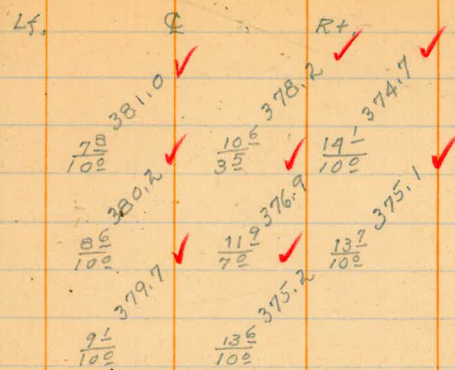 Lf. ℄ Rt.
381.0 378.2 374.7
7 8/10 0 10 6/3 5 14 1/10 0
380.2 376.9 375.1
8 6/10 0 11 9/7 0 13 7/10 0
379.7 375.2
9 1/10 0 13 6/10 0